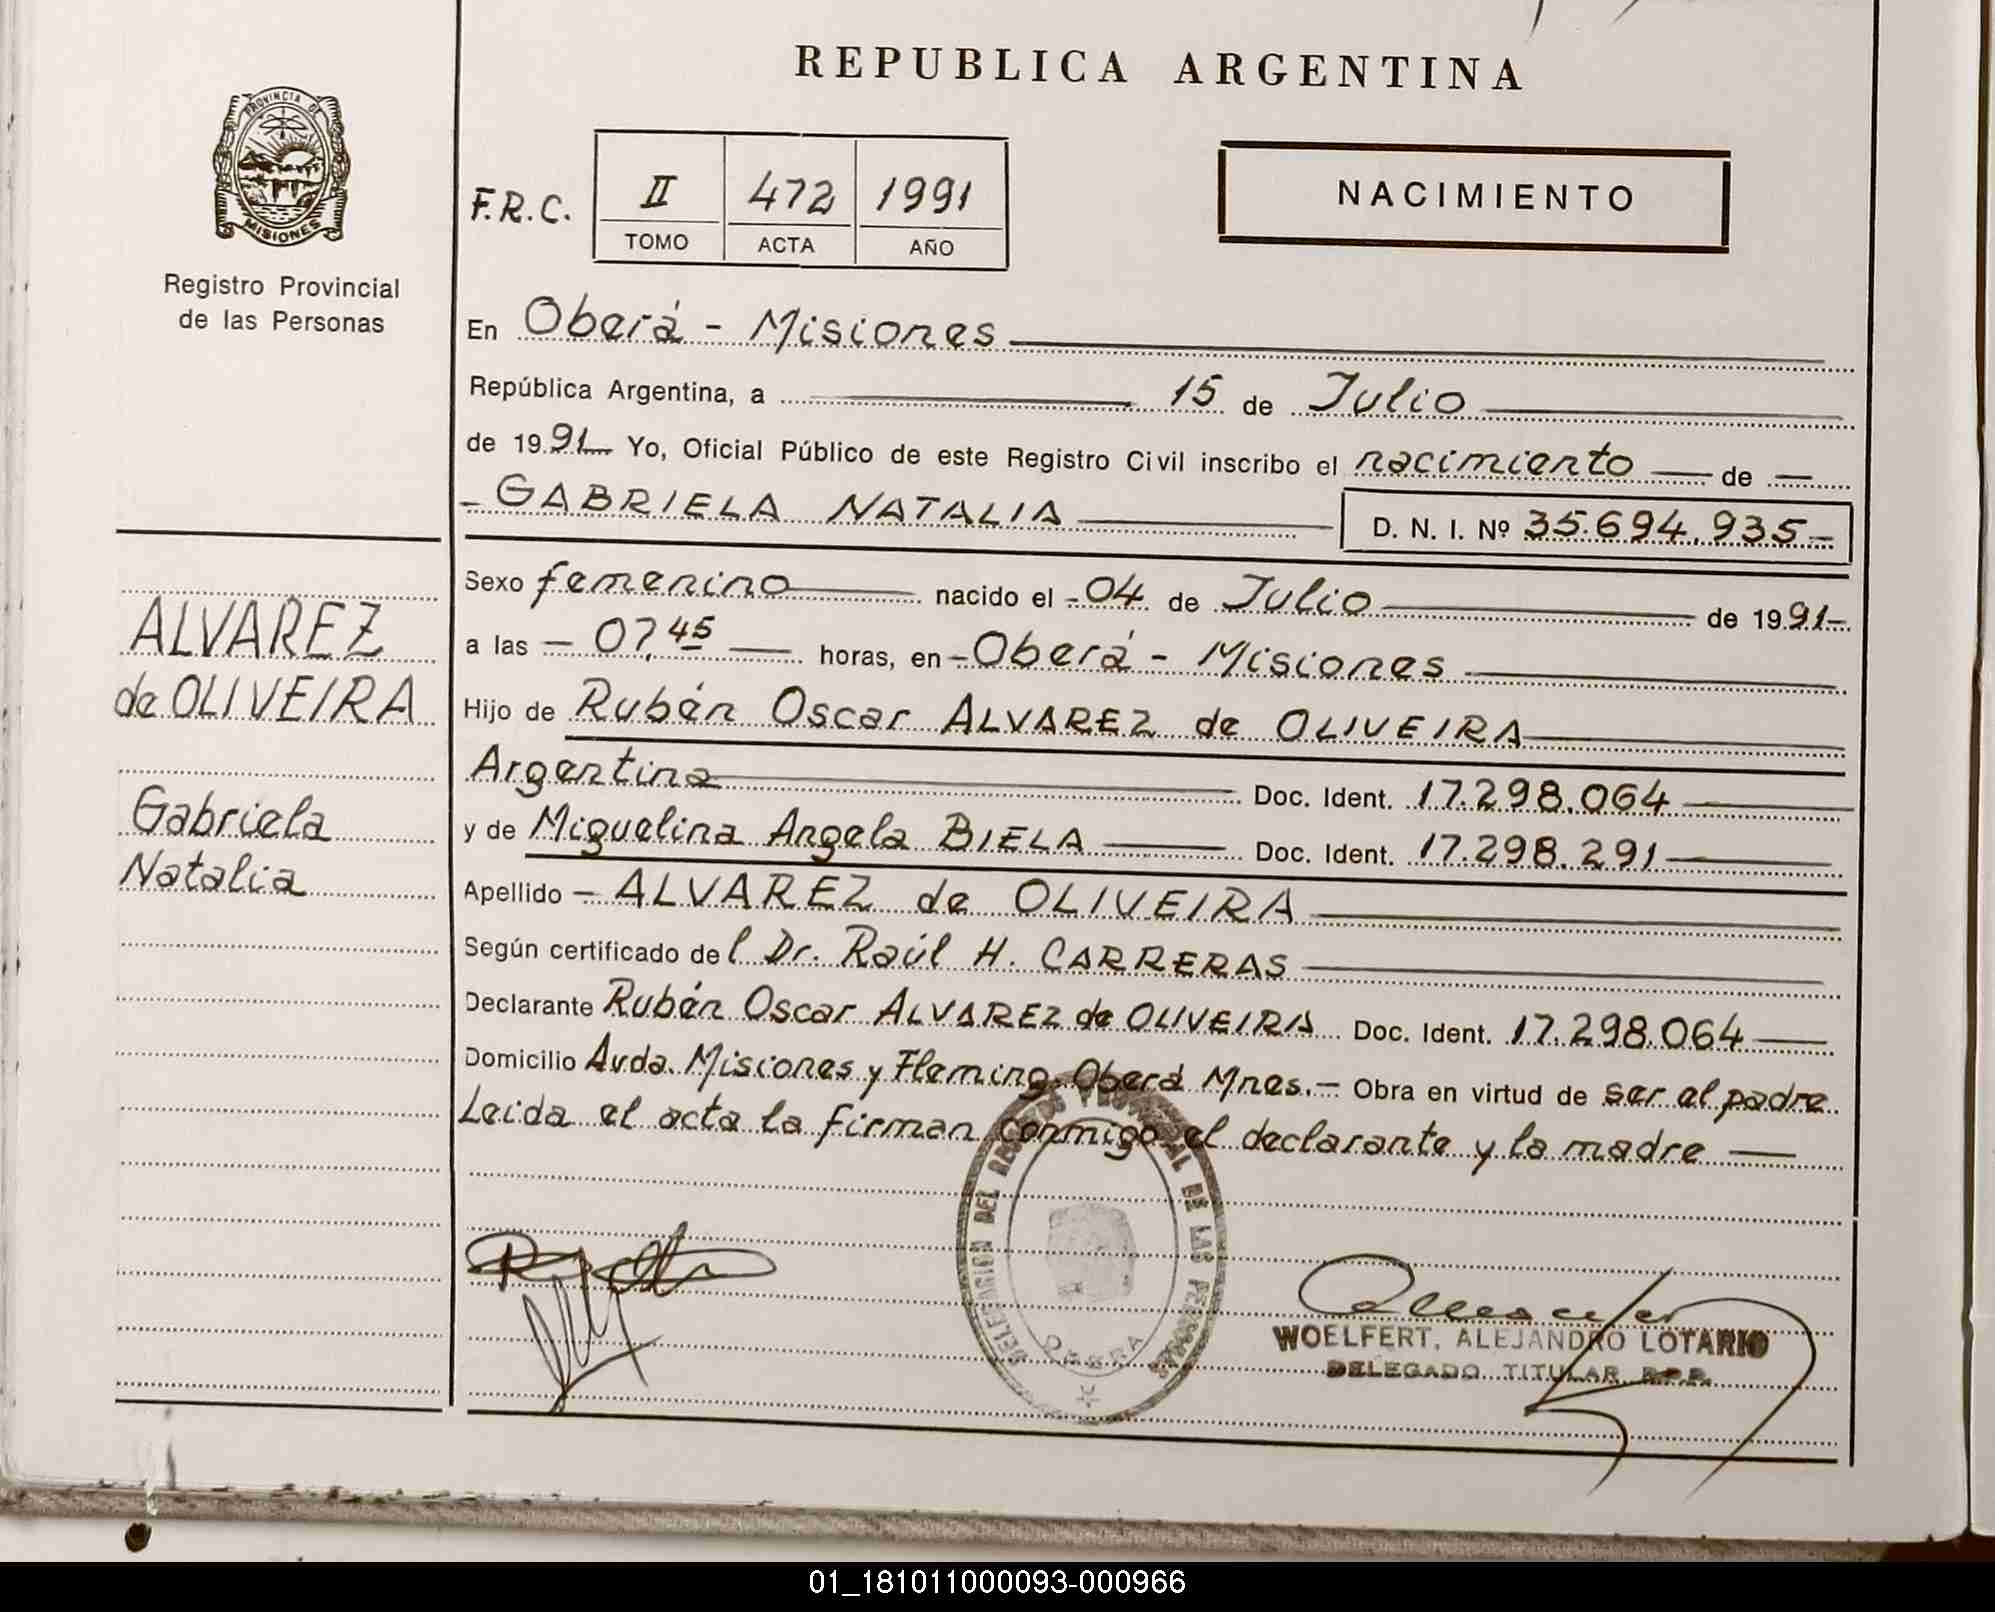 REPUBLICA ARGENTINA
PROVINCIA DE
MISIONES
Registro Provincial
de las Personas
F.R.C.
II 472 1991
TOMO ACTA AÑO
NACIMIENTO
En Oberá - Misiones
República Argentina, a 15 de Julio
de 1991 Yo, Oficial Público de este Registro Civil inscribo el nacimiento de
GABRIELA NATALIA D. N. I. Nº 35.694.935
Sexo femenino nacido el 04 de Julio de 1991
a las 07,45 horas, en Oberá - Misiones
Hijo de Rubén Oscar ALVAREZ de OLIVEIRA
Argentina Doc. Ident. 17.298.064
y de Miguelina Angela BIELA Doc. Ident. 17.298.291
Apellido ALVAREZ de OLIVEIRA
Según certificado del Dr. Raúl H. CARRERAS
Declarante Rubén Oscar ALVAREZ de OLIVEIRA Doc. Ident. 17.298.064
Domicilio Avda. Misiones y Fleming. Oberá Mnes.- Obra en virtud de ser el padre
Leida el acta la firman conmigo el declarante y la madre
ALVAREZ
de OLIVEIRA
Gabriela
Natalia
DELEGACION DEL REGISTRO PROVINCIAL DE LAS PERSONAS
OBERA
WOELFERT, ALEJANDRO LOTARIO
DELEGADO TITULAR R.P.P.
01_181011000093-000966